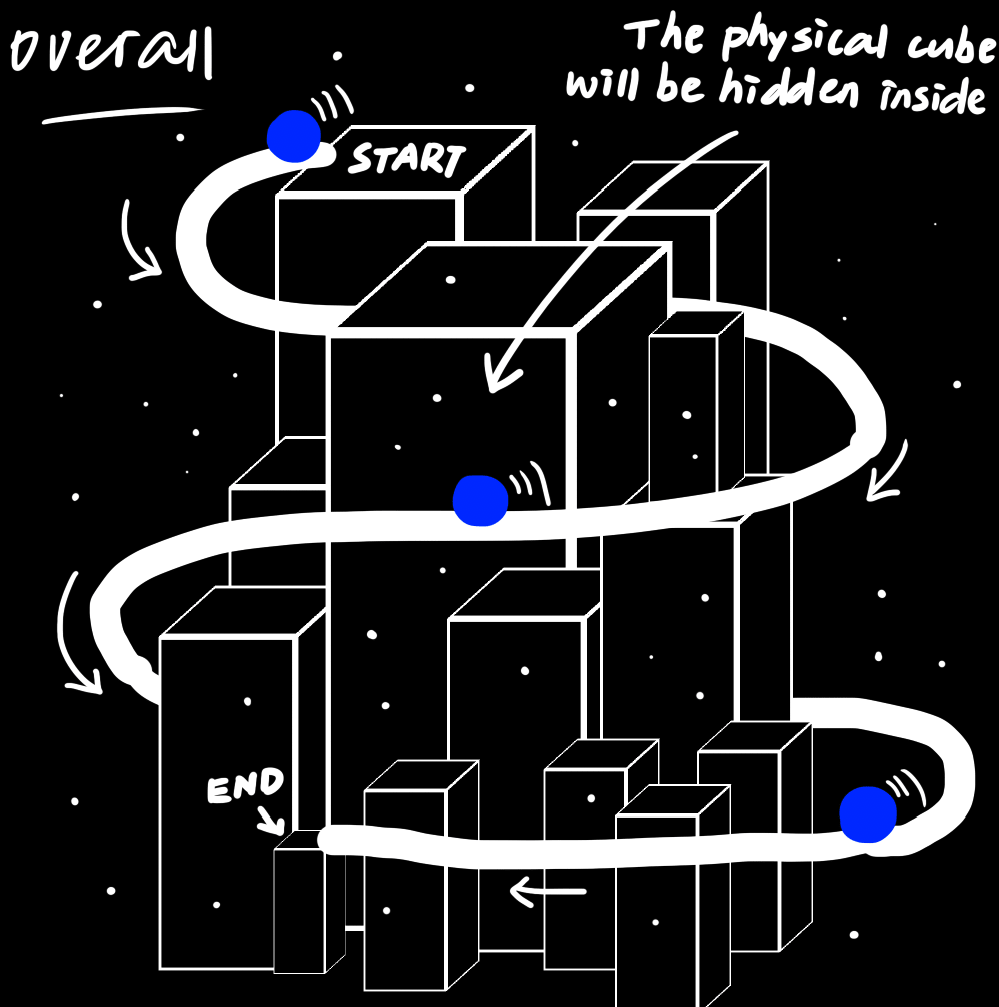 overall
The physical cube
will be hidden inside
START
END